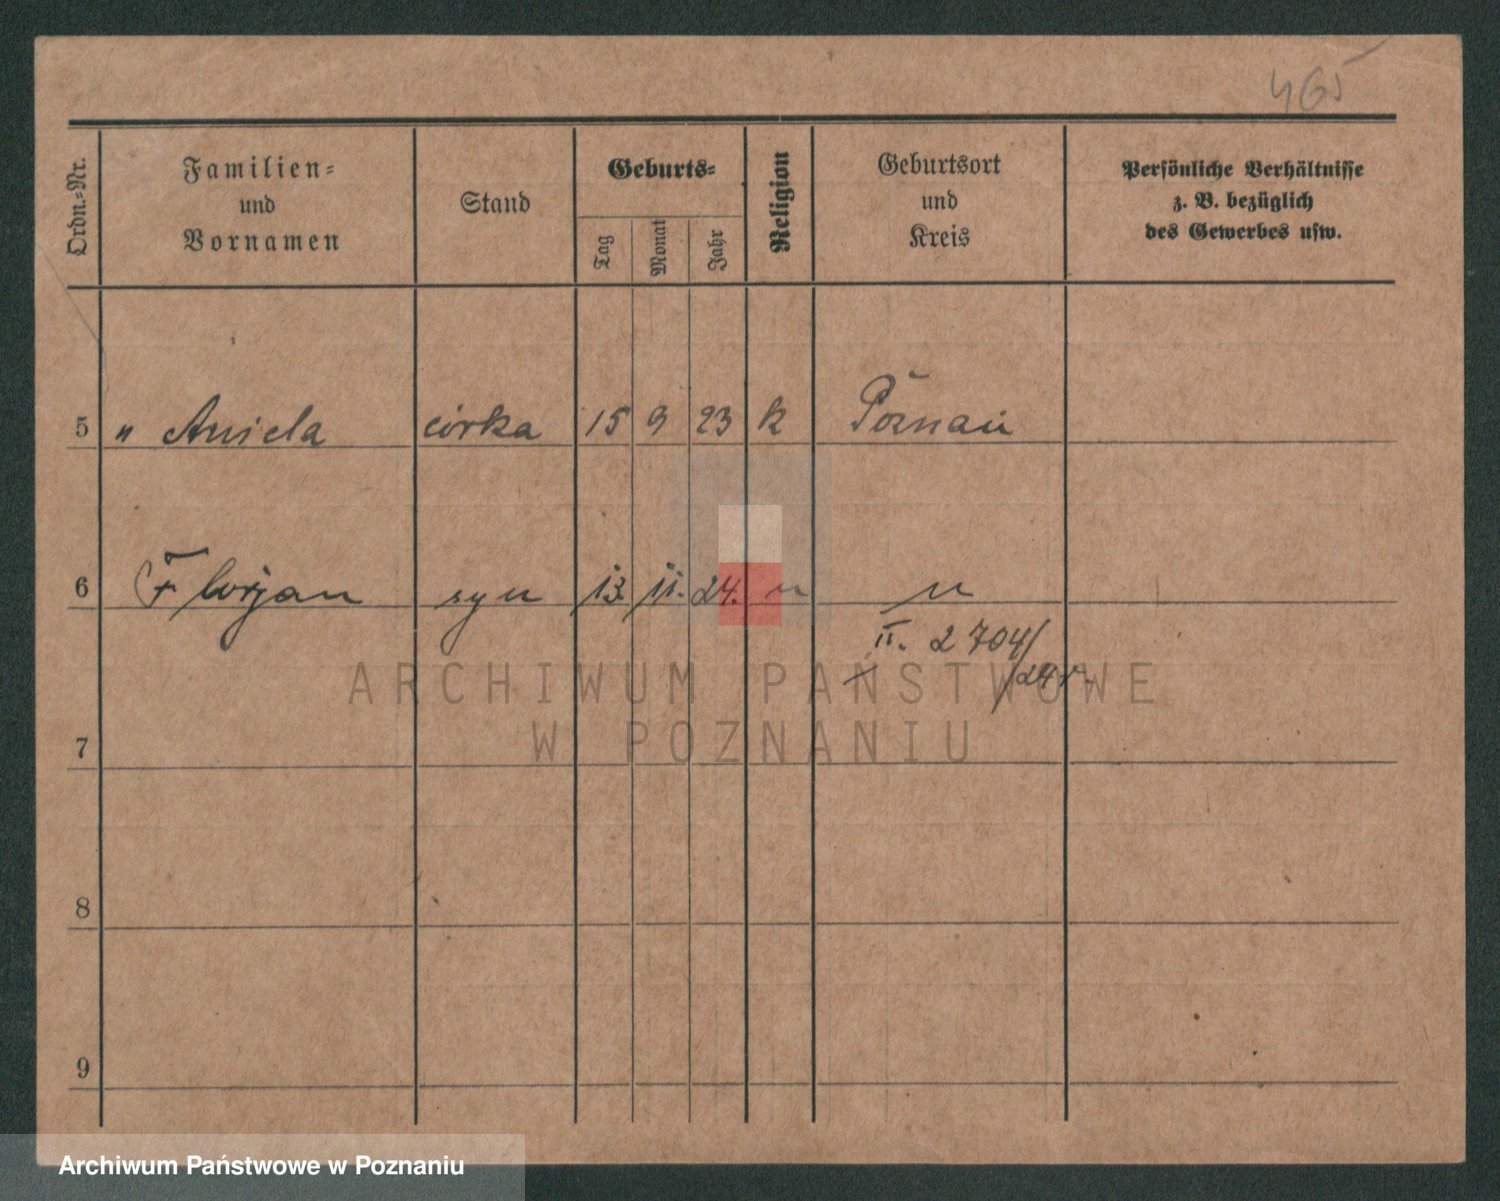 465
Ordn.-Nr.
Familien-
und
Vornamen
Stand
Geburts-
Tag
Monat
Jahr
Religion
Geburtsort
und
Kreis
Persönliche Verhältnisse
z. B. bezüglich
des Gewerbes usw.
5 " Aniela córka 15 9 23 k Poznań
6 Florjan syn 13. 11. 24. " "
II. 2704/
/24 r.
ARCHIWUM PAŃSTWOWE
W POZNANIU
7
8
9
Archiwum Państwowe w Poznaniu